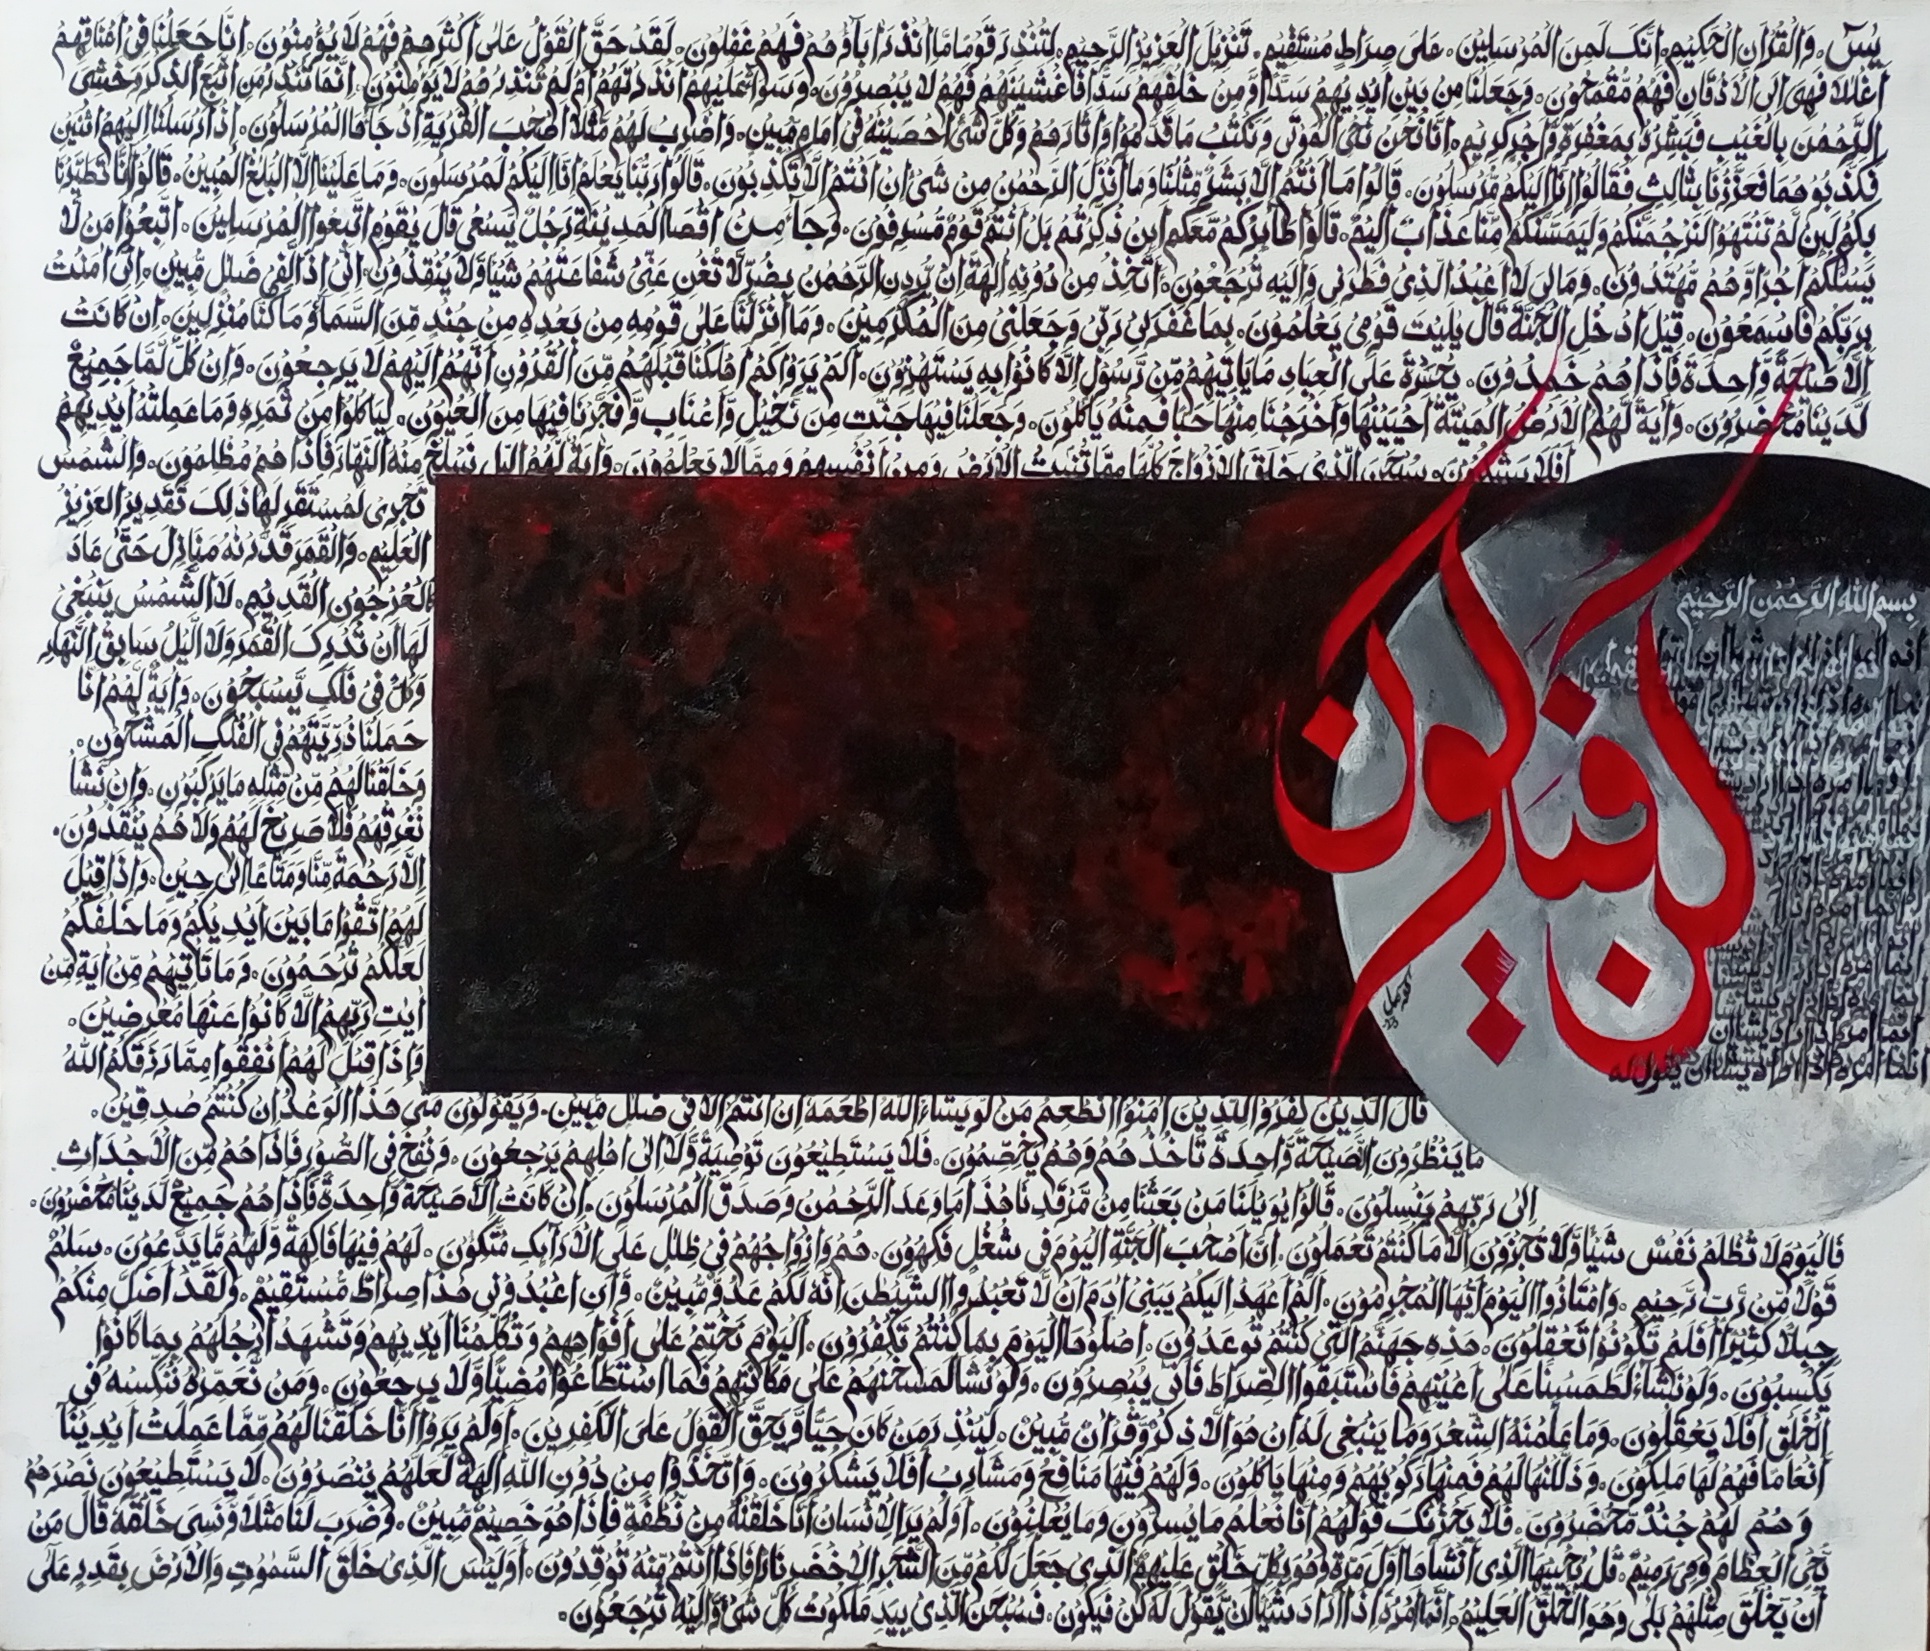 يٰسٓ۔ وَالْقُرْاٰنِ الْحَكِيْمِ۔ اِنَّكَ لَمِنَ الْمُرْسَلِيْنَ۔ عَلٰى صِرَاطٍ مُّسْتَقِيْمٍ۔ تَنْزِيْلَ الْعَزِيْزِ الرَّحِيْمِ۔ لِتُنْذِرَ قَوْمًا مَّا اُنْذِرَ اٰبَآؤُهُمْ فَهُمْ غٰفِلُوْنَ۔ لَقَدْ حَقَّ الْقَوْلُ عَلٰى اَكْثَرِهِمْ فَهُمْ لَا يُؤْمِنُوْنَ۔ اِنَّا جَعَلْنَا فِىْ اَعْنَاقِهِمْ
اَغْلٰلًا فَهِىَ اِلَى الْاَذْقَانِ فَهُمْ مُّقْمَحُوْنَ۔ وَجَعَلْنَا مِنْ بَيْنِ اَيْدِيْهِمْ سَدًّا وَّمِنْ خَلْفِهِمْ سَدًّا فَاَغْشَيْنٰهُمْ فَهُمْ لَا يُبْصِرُوْنَ۔ وَسَوَآءٌ عَلَيْهِمْ ءَاَنْذَرْتَهُمْ اَمْ لَمْ تُنْذِرْهُمْ لَا يُؤْمِنُوْنَ۔ اِنَّمَا تُنْذِرُ مَنِ اتَّبَعَ الذِّكْرَ وَخَشِىَ
الرَّحْمٰنَ بِالْغَيْبِ فَبَشِّرْهُ بِمَغْفِرَةٍ وَّاَجْرٍ كَرِيْمٍ۔ اِنَّا نَحْنُ نُحْىِ الْمَوْتٰى وَنَكْتُبُ مَا قَدَّمُوْا وَاٰثَارَهُمْ وَكُلَّ شَىْءٍ اَحْصَيْنٰهُ فِىْ اِمَامٍ مُّبِيْنٍ۔ وَاضْرِبْ لَهُمْ مَّثَلًا اَصْحٰبَ الْقَرْيَةِ اِذْ جَآءَهَا الْمُرْسَلُوْنَ۔ اِذْ اَرْسَلْنَا اِلَيْهِمُ اثْنَيْنِ
فَكَذَّبُوْهُمَا فَعَزَّزْنَا بِثَالِثٍ فَقَالُوْا اِنَّا اِلَيْكُمْ مُّرْسَلُوْنَ۔ قَالُوْا مَا اَنْتُمْ اِلَّا بَشَرٌ مِّثْلُنَا وَمَا اَنْزَلَ الرَّحْمٰنُ مِنْ شَىْءٍ اِنْ اَنْتُمْ اِلَّا تَكْذِبُوْنَ۔ قَالُوْا رَبُّنَا يَعْلَمُ اِنَّا اِلَيْكُمْ لَمُرْسَلُوْنَ۔ وَمَا عَلَيْنَا اِلَّا الْبَلٰغُ الْمُبِيْنُ۔ قَالُوْا اِنَّا تَطَيَّرْنَا
بِكُمْ لَئِنْ لَّمْ تَنْتَهُوْا لَنَرْجُمَنَّكُمْ وَلَيَمَسَّنَّكُمْ مِّنَّا عَذَابٌ اَلِيْمٌ۔ قَالُوْا طَآئِرُكُمْ مَّعَكُمْ اَئِنْ ذُكِّرْتُمْ بَلْ اَنْتُمْ قَوْمٌ مُّسْرِفُوْنَ۔ وَجَآءَ مِنْ اَقْصَا الْمَدِيْنَةِ رَجُلٌ يَّسْعٰى قَالَ يٰقَوْمِ اتَّبِعُوا الْمُرْسَلِيْنَ۔ اتَّبِعُوْا مَنْ لَّا
يَسْئَلُكُمْ اَجْرًا وَّهُمْ مُّهْتَدُوْنَ۔ وَمَا لِىَ لَا اَعْبُدُ الَّذِىْ فَطَرَنِىْ وَاِلَيْهِ تُرْجَعُوْنَ۔ ءَاَتَّخِذُ مِنْ دُوْنِهٖ اٰلِهَةً اِنْ يُّرِدْنِ الرَّحْمٰنُ بِضُرٍّ لَّا تُغْنِ عَنِّىْ شَفَاعَتُهُمْ شَيْئًا وَّلَا يُنْقِذُوْنِ۔ اِنِّىْ اِذًا لَّفِىْ ضَلٰلٍ مُّبِيْنٍ۔ اِنِّىْ اٰمَنْتُ
بِرَبِّكُمْ فَاسْمَعُوْنِ۔ قِيْلَ ادْخُلِ الْجَنَّةَ قَالَ يٰلَيْتَ قَوْمِىْ يَعْلَمُوْنَ۔ بِمَا غَفَرَ لِىْ رَبِّىْ وَجَعَلَنِىْ مِنَ الْمُكْرَمِيْنَ۔ وَمَا اَنْزَلْنَا عَلٰى قَوْمِهٖ مِنْ بَعْدِهٖ مِنْ جُنْدٍ مِّنَ السَّمَآءِ وَمَا كُنَّا مُنْزِلِيْنَ۔ اِنْ كَانَتْ
اِلَّا صَيْحَةً وَّاحِدَةً فَاِذَا هُمْ خٰمِدُوْنَ۔ يٰحَسْرَةً عَلَى الْعِبَادِ مَا يَاْتِيْهِمْ مِّنْ رَّسُوْلٍ اِلَّا كَانُوْا بِهٖ يَسْتَهْزِءُوْنَ۔ اَلَمْ يَرَوْا كَمْ اَهْلَكْنَا قَبْلَهُمْ مِّنَ الْقُرُوْنِ اَنَّهُمْ اِلَيْهِمْ لَا يَرْجِعُوْنَ۔ وَاِنْ كُلٌّ لَّمَّا جَمِيْعٌ
لَّدَيْنَا مُحْضَرُوْنَ۔ وَاٰيَةٌ لَّهُمُ الْاَرْضُ الْمَيْتَةُ اَحْيَيْنٰهَا وَاَخْرَجْنَا مِنْهَا حَبًّا فَمِنْهُ يَاْكُلُوْنَ۔ وَجَعَلْنَا فِيْهَا جَنّٰتٍ مِّنْ نَّخِيْلٍ وَّاَعْنَابٍ وَّفَجَّرْنَا فِيْهَا مِنَ الْعُيُوْنِ۔ لِيَاْكُلُوْا مِنْ ثَمَرِهٖ وَمَا عَمِلَتْهُ اَيْدِيْهِمْ
اَفَلَا يَشْكُرُوْنَ۔ سُبْحٰنَ الَّذِىْ خَلَقَ الْاَزْوَاجَ كُلَّهَا مِمَّا تُنْبِتُ الْاَرْضُ وَمِنْ اَنْفُسِهِمْ وَمِمَّا لَا يَعْلَمُوْنَ۔ وَاٰيَةٌ لَّهُمُ الَّيْلُ نَسْلَخُ مِنْهُ النَّهَارَ فَاِذَا هُمْ مُّظْلِمُوْنَ۔ وَالشَّمْسُ
تَجْرِىْ لِمُسْتَقَرٍّ لَّهَا ذٰلِكَ تَقْدِيْرُ الْعَزِيْزِ
الْعَلِيْمِ۔ وَالْقَمَرَ قَدَّرْنٰهُ مَنَازِلَ حَتّٰى عَادَ
كَالْعُرْجُوْنِ الْقَدِيْمِ۔ لَا الشَّمْسُ يَنْبَغِىْ
لَهَا اَنْ تُدْرِكَ الْقَمَرَ وَلَا الَّيْلُ سَابِقُ النَّهَارِ
وَكُلٌّ فِىْ فَلَكٍ يَّسْبَحُوْنَ۔ وَاٰيَةٌ لَّهُمْ اَنَّا
حَمَلْنَا ذُرِّيَّتَهُمْ فِى الْفُلْكِ الْمَشْحُوْنِ۔
وَخَلَقْنَا لَهُمْ مِّنْ مِّثْلِهٖ مَا يَرْكَبُوْنَ۔ وَاِنْ نَّشَاْ
نُغْرِقْهُمْ فَلَا صَرِيْخَ لَهُمْ وَلَا هُمْ يُنْقَذُوْنَ۔
اِلَّا رَحْمَةً مِّنَّا وَمَتَاعًا اِلٰى حِيْنٍ۔ وَاِذَا قِيْلَ
لَهُمُ اتَّقُوْا مَا بَيْنَ اَيْدِيْكُمْ وَمَا خَلْفَكُمْ
لَعَلَّكُمْ تُرْحَمُوْنَ۔ وَمَا تَاْتِيْهِمْ مِّنْ اٰيَةٍ مِّنْ
اٰيٰتِ رَبِّهِمْ اِلَّا كَانُوْا عَنْهَا مُعْرِضِيْنَ۔
وَاِذَا قِيْلَ لَهُمْ اَنْفِقُوْا مِمَّا رَزَقَكُمُ اللّٰهُ
قَالَ الَّذِيْنَ كَفَرُوْا لِلَّذِيْنَ اٰمَنُوْا اَنُطْعِمُ مَنْ لَّوْ يَشَآءُ اللّٰهُ اَطْعَمَهٗ اِنْ اَنْتُمْ اِلَّا فِىْ ضَلٰلٍ مُّبِيْنٍ۔ وَيَقُوْلُوْنَ مَتٰى هٰذَا الْوَعْدُ اِنْ كُنْتُمْ صٰدِقِيْنَ۔
مَا يَنْظُرُوْنَ اِلَّا صَيْحَةً وَّاحِدَةً تَاْخُذُهُمْ وَهُمْ يَخِصِّمُوْنَ۔ فَلَا يَسْتَطِيْعُوْنَ تَوْصِيَةً وَّلَا اِلٰى اَهْلِهِمْ يَرْجِعُوْنَ۔ وَنُفِخَ فِى الصُّوْرِ فَاِذَا هُمْ مِّنَ الْاَجْدَاثِ
اِلٰى رَبِّهِمْ يَنْسِلُوْنَ۔ قَالُوْا يٰوَيْلَنَا مَنْ بَعَثَنَا مِنْ مَّرْقَدِنَا هٰذَا مَا وَعَدَ الرَّحْمٰنُ وَصَدَقَ الْمُرْسَلُوْنَ۔ اِنْ كَانَتْ اِلَّا صَيْحَةً وَّاحِدَةً فَاِذَا هُمْ جَمِيْعٌ لَّدَيْنَا مُحْضَرُوْنَ۔
فَالْيَوْمَ لَا تُظْلَمُ نَفْسٌ شَيْئًا وَّلَا تُجْزَوْنَ اِلَّا مَا كُنْتُمْ تَعْمَلُوْنَ۔ اِنَّ اَصْحٰبَ الْجَنَّةِ الْيَوْمَ فِىْ شُغُلٍ فٰكِهُوْنَ۔ هُمْ وَاَزْوَاجُهُمْ فِىْ ظِلٰلٍ عَلَى الْاَرَآئِكِ مُتَّكِئُوْنَ۔ لَهُمْ فِيْهَا فَاكِهَةٌ وَّلَهُمْ مَّا يَدَّعُوْنَ۔ سَلٰمٌ
قَوْلًا مِّنْ رَّبٍّ رَّحِيْمٍ۔ وَامْتَازُوا الْيَوْمَ اَيُّهَا الْمُجْرِمُوْنَ۔ اَلَمْ اَعْهَدْ اِلَيْكُمْ يٰبَنِىْ اٰدَمَ اَنْ لَّا تَعْبُدُوا الشَّيْطٰنَ اِنَّهٗ لَكُمْ عَدُوٌّ مُّبِيْنٌ۔ وَّاَنِ اعْبُدُوْنِىْ هٰذَا صِرَاطٌ مُّسْتَقِيْمٌ۔ وَلَقَدْ اَضَلَّ مِنْكُمْ
جِبِلًّا كَثِيْرًا اَفَلَمْ تَكُوْنُوْا تَعْقِلُوْنَ۔ هٰذِهٖ جَهَنَّمُ الَّتِىْ كُنْتُمْ تُوْعَدُوْنَ۔ اِصْلَوْهَا الْيَوْمَ بِمَا كُنْتُمْ تَكْفُرُوْنَ۔ اَلْيَوْمَ نَخْتِمُ عَلٰى اَفْوَاهِهِمْ وَتُكَلِّمُنَا اَيْدِيْهِمْ وَتَشْهَدُ اَرْجُلُهُمْ بِمَا كَانُوْا
يَكْسِبُوْنَ۔ وَلَوْ نَشَآءُ لَطَمَسْنَا عَلٰى اَعْيُنِهِمْ فَاسْتَبَقُوا الصِّرَاطَ فَاَنّٰى يُبْصِرُوْنَ۔ وَلَوْ نَشَآءُ لَمَسَخْنٰهُمْ عَلٰى مَكَانَتِهِمْ فَمَا اسْتَطَاعُوْا مُضِيًّا وَّلَا يَرْجِعُوْنَ۔ وَمَنْ نُّعَمِّرْهُ نُنَكِّسْهُ فِى
الْخَلْقِ اَفَلَا يَعْقِلُوْنَ۔ وَمَا عَلَّمْنٰهُ الشِّعْرَ وَمَا يَنْبَغِىْ لَهٗ اِنْ هُوَ اِلَّا ذِكْرٌ وَّقُرْاٰنٌ مُّبِيْنٌ۔ لِيُنْذِرَ مَنْ كَانَ حَيًّا وَّيَحِقَّ الْقَوْلُ عَلَى الْكٰفِرِيْنَ۔ اَوَلَمْ يَرَوْا اَنَّا خَلَقْنَا لَهُمْ مِّمَّا عَمِلَتْ اَيْدِيْنَا
اَنْعَامًا فَهُمْ لَهَا مٰلِكُوْنَ۔ وَذَلَّلْنٰهَا لَهُمْ فَمِنْهَا رَكُوْبُهُمْ وَمِنْهَا يَاْكُلُوْنَ۔ وَلَهُمْ فِيْهَا مَنَافِعُ وَمَشَارِبُ اَفَلَا يَشْكُرُوْنَ۔ وَاتَّخَذُوْا مِنْ دُوْنِ اللّٰهِ اٰلِهَةً لَّعَلَّهُمْ يُنْصَرُوْنَ۔ لَا يَسْتَطِيْعُوْنَ نَصْرَهُمْ
وَهُمْ لَهُمْ جُنْدٌ مُّحْضَرُوْنَ۔ فَلَا يَحْزُنْكَ قَوْلُهُمْ اِنَّا نَعْلَمُ مَا يُسِرُّوْنَ وَمَا يُعْلِنُوْنَ۔ اَوَلَمْ يَرَ الْاِنْسَانُ اَنَّا خَلَقْنٰهُ مِنْ نُّطْفَةٍ فَاِذَا هُوَ خَصِيْمٌ مُّبِيْنٌ۔ وَضَرَبَ لَنَا مَثَلًا وَّنَسِىَ خَلْقَهٗ قَالَ مَنْ
يُّحْىِ الْعِظَامَ وَهِىَ رَمِيْمٌ۔ قُلْ يُحْيِيْهَا الَّذِىْ اَنْشَاَهَا اَوَّلَ مَرَّةٍ وَهُوَ بِكُلِّ خَلْقٍ عَلِيْمٌ۔ الَّذِىْ جَعَلَ لَكُمْ مِّنَ الشَّجَرِ الْاَخْضَرِ نَارًا فَاِذَا اَنْتُمْ مِّنْهُ تُوْقِدُوْنَ۔ اَوَلَيْسَ الَّذِىْ خَلَقَ السَّمٰوٰتِ وَالْاَرْضَ بِقٰدِرٍ عَلٰى
اَنْ يَّخْلُقَ مِثْلَهُمْ بَلٰى وَهُوَ الْخَلّٰقُ الْعَلِيْمُ۔ اِنَّمَا اَمْرُهٗ اِذَا اَرَادَ شَيْئًا اَنْ يَّقُوْلَ لَهٗ كُنْ فَيَكُوْنُ۔ فَسُبْحٰنَ الَّذِىْ بِيَدِهٖ مَلَكُوْتُ كُلِّ شَىْءٍ وَّاِلَيْهِ تُرْجَعُوْنَ۔
بسم الله الرحمن الرحيم
انما امره اذا اراد شيئا ان يقول له
كن فيكون